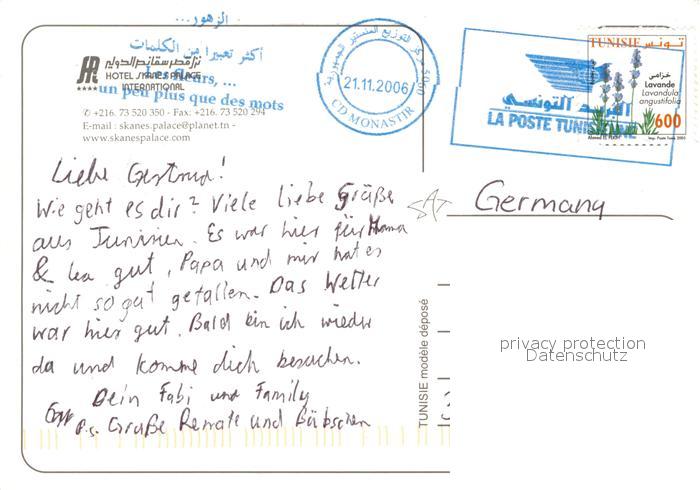 الزهور...
أكثر تعبيرا من الكلمات
Les fleurs, ...
un peu plus que des mots
HOTEL SKANES PALACE
INTERNATIONAL
✆ +216. 73 520 350 - Fax: +216. 73 520 294
E-mail : skanes.palace@planet.tn -
www.skanespalace.com
21.11.2006
5060
CD MONASTIR
TUNISIE تونس
خزامى
Lavande
Lavandula
angustifolia
600
البريد التونسي
LA POSTE TUNISIENNE
Liebe Gertrud!
Wie geht es dir? Viele liebe Grüße
aus Tunisien. Es war hier für Mama
& Lea gut, Papa und mir hat es
nicht so gut gefallen. Das Wetter
war hier gut. Bald bin ich wieder
da und komme dich besuchen.
Dein Fabi und Family
P.S. Grüße Renate und Bärbchen
Germany
privacy protection
Datenschutz
TUNISIE modèle déposé